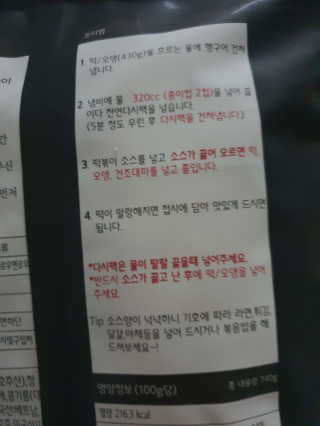 조리법
1. 떡/오뎅(430g)을 흐르는 물에 헹구어 건져
냅니다.
2. 냄비에 물 320cc (종이컵 2컵)을 넣어 끓
이다 천연다시팩을 넣습니다.
(5분 정도 우린 후 다시팩을 건져냅니다.)
3. 떡볶이 소스를 넣고 소스가 끓어 오르면 떡,
오뎅, 건조대파를 넣고 졸입니다.
4. 떡이 말랑해지면 접시에 담아 맛있게 드시면
됩니다.
*다시팩은 물이 팔팔 끓을때 넣어주세요.
*반드시 소스가 끓고 난 후에 떡/오뎅을 넣어
주세요.
Tip 소스양이 넉넉하니 기호에 따라 라면, 튀김,
달걀, 야채등을 넣어 드시거나 볶음밥을 해
드셔보세요~!
영양정보 (100g당)
총 내용량 740g
열량 216.3 kcal